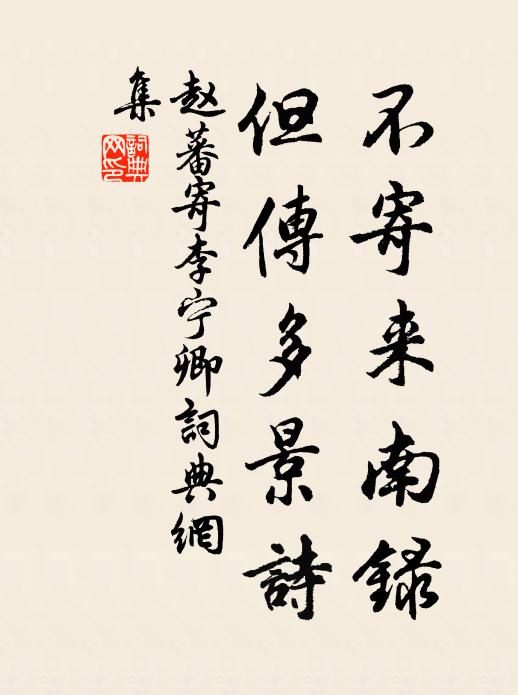 不寄来南録
但傳多景詩
赵蕃寄李宁卿詞典網
集
詞典网印